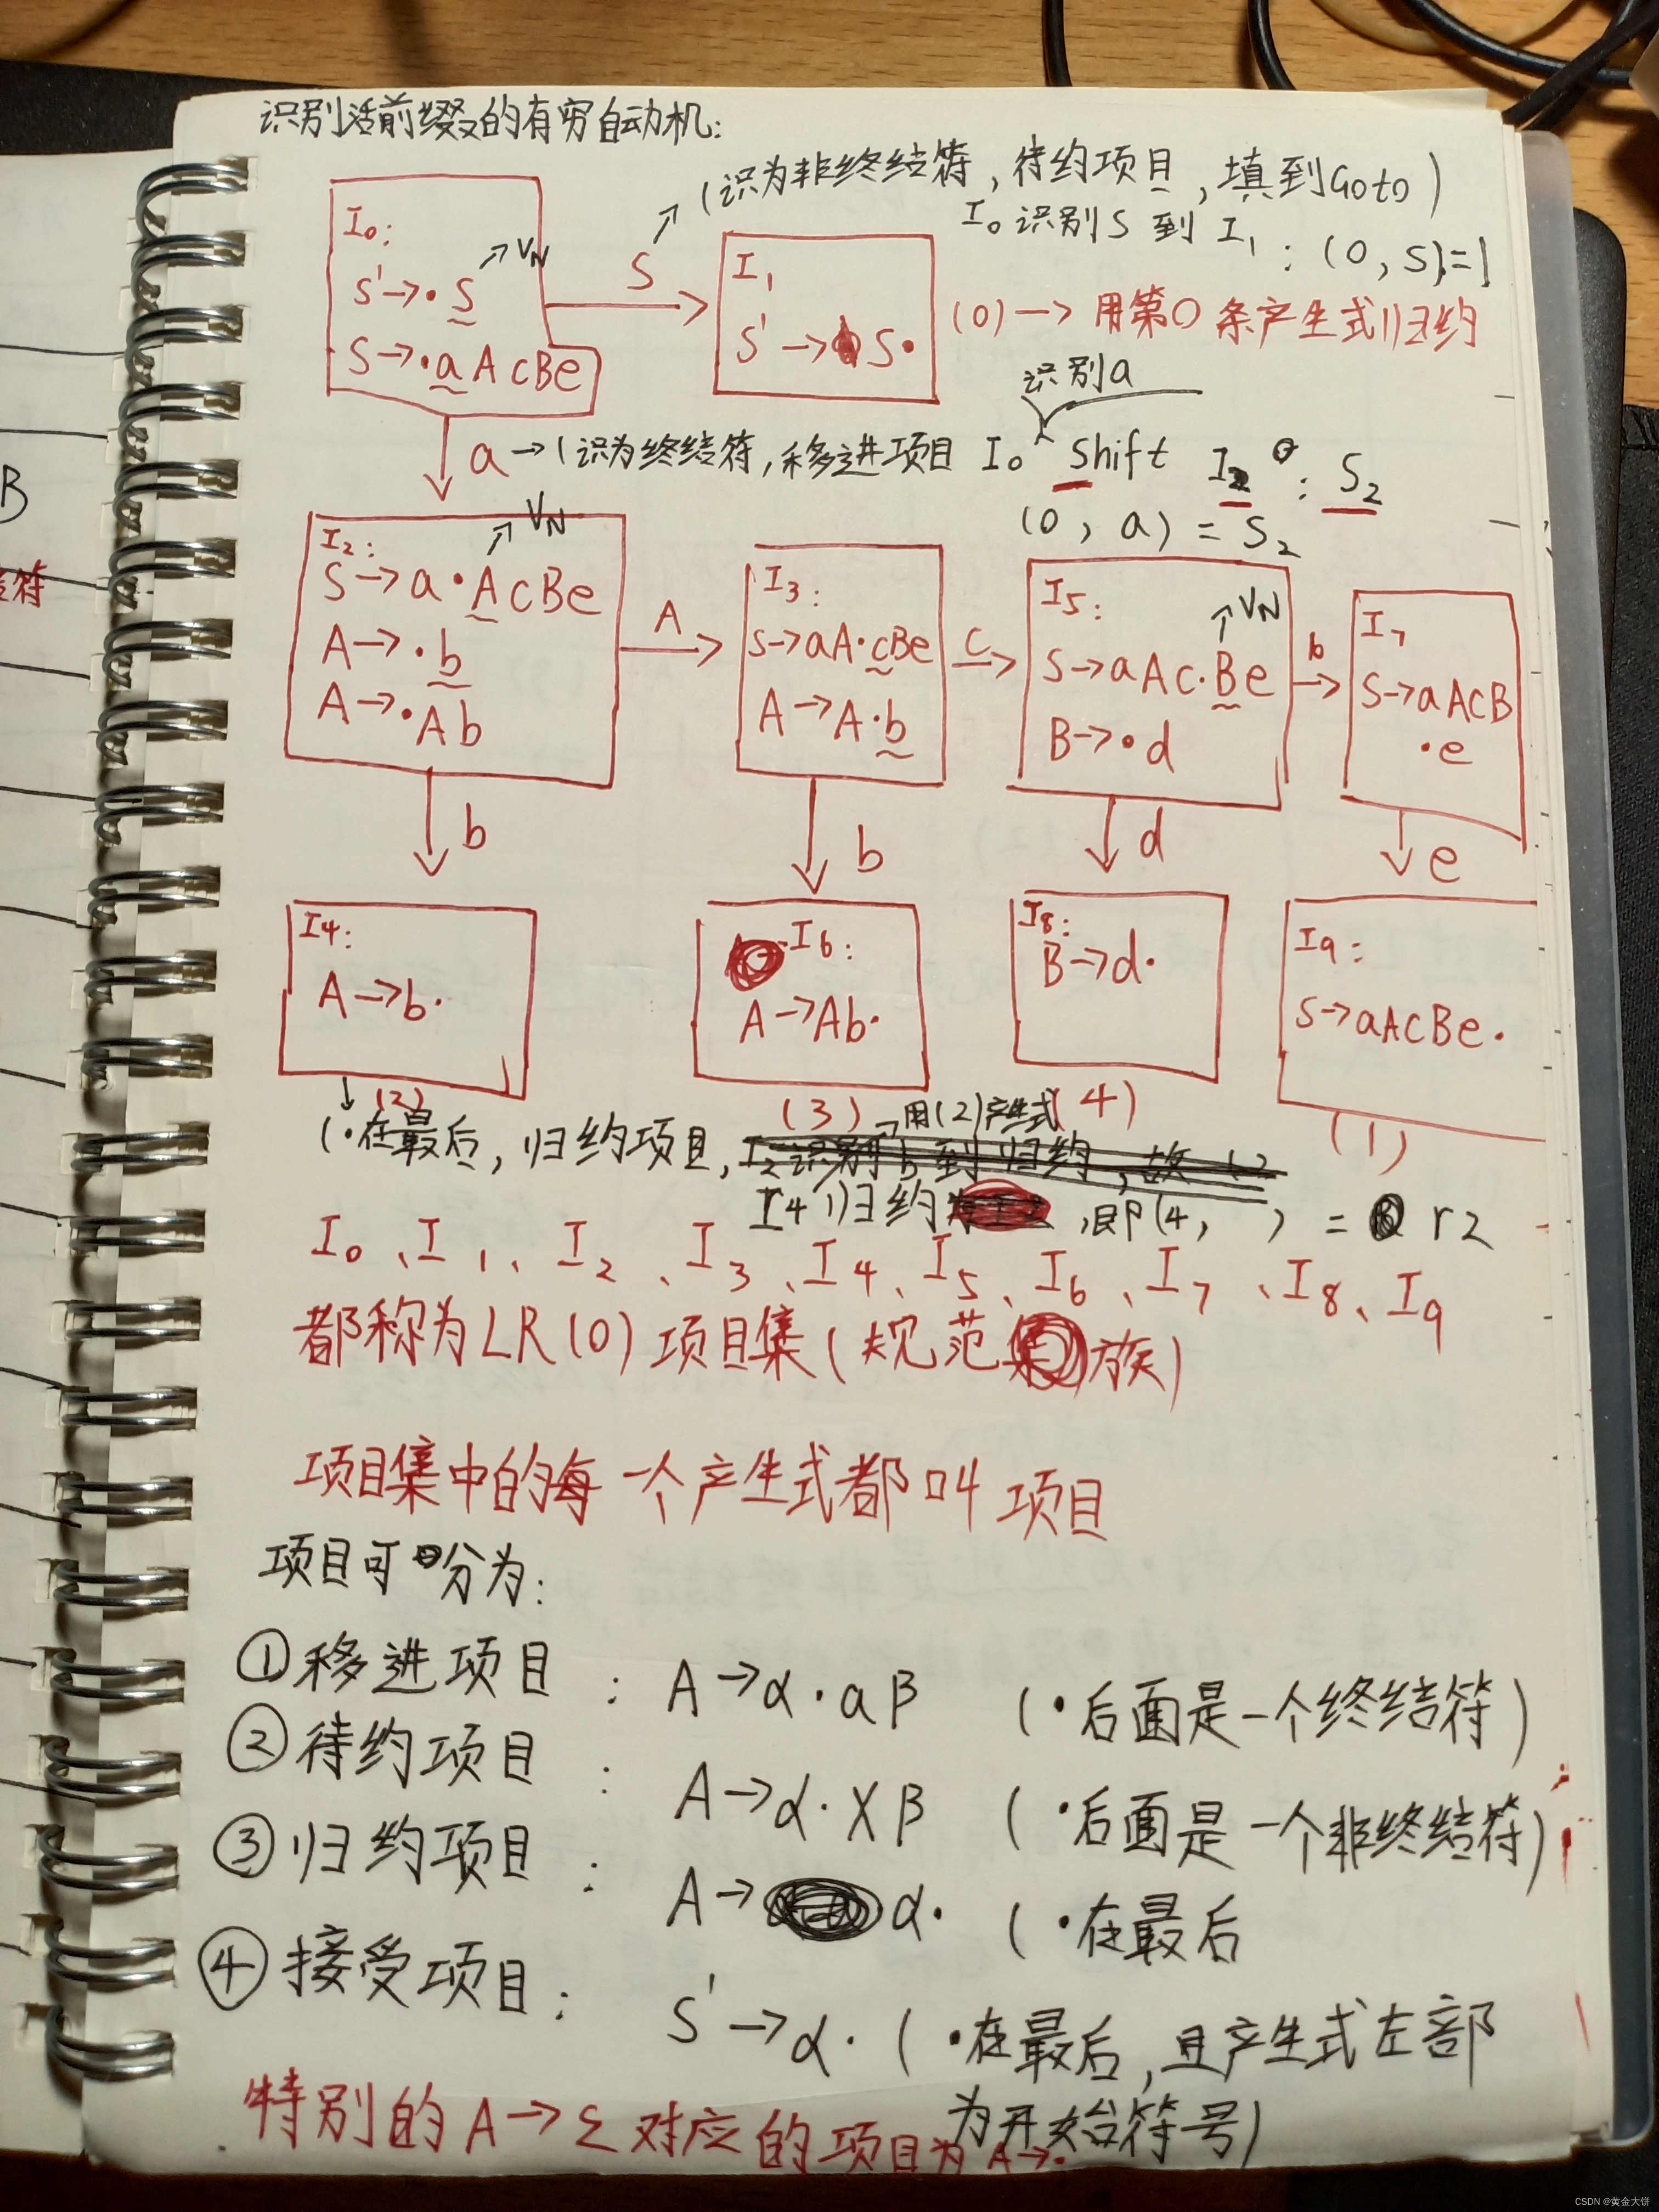 识别活前缀的有穷自动机:
(识为非终结符,待约项目,填到Goto)
I₀ 识别S 到 I₁ : (0,S)=1
I₀:
S'→·S
→VN
S→·aAcBe
S
I₁
S'→S·
(0)→用第0条产生式归约
识别a
a→(识为终结符,移进项目 I₀ Shift I₂ : S₂
(0,a)=S₂
I₂:
→VN
S→a·AcBe
A→·b
A→·Ab
A
I₃:
S→aA·cBe
A→A·b
c
I₅:
→VN
S→aAc·Be
B→·d
b
I₇
S→aAcB
·e
b
b
d
e
I₄:
A→b·
I₆:
A→Ab·
I₈:
B→d·
I₉:
S→aAcBe·
(2)
(3)
→用(2)产生式
(4)
(1)
(·在最后,归约项目, I₂识别b到归约,故
I₄归约,即(4, )= r2
I₀、I₁、I₂、I₃、I₄、I₅、I₆、I₇、I₈、I₉
都称为LR(0)项目集(规范族)
项目集中的每一个产生式都叫项目
项目可分为:
①移进项目: A→α·aβ (·后面是一个终结符)
②待约项目: A→α·Xβ (·后面是一个非终结符)
③归约项目: A→α· (·在最后
④接受项目: S'→α· (·在最后,且产生式左部
为开始符号)
特别的A→ε对应的项目为A→·
B
符
CSDN @黄金大饼